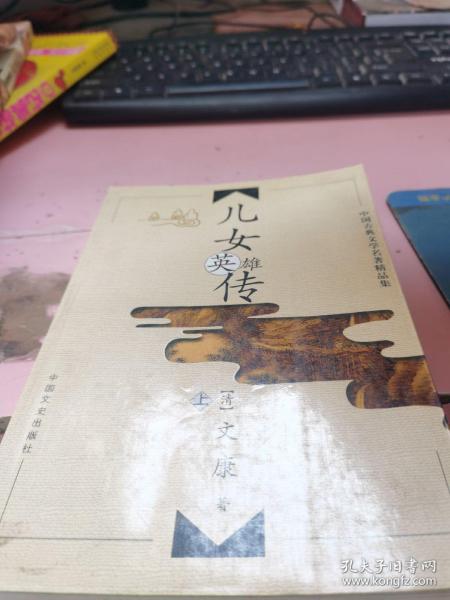 儿女英雄传
中国古典文学名著精品集
上
[清]文康 著
中国文史出版社
孔夫子旧书网
www.kongfz.com